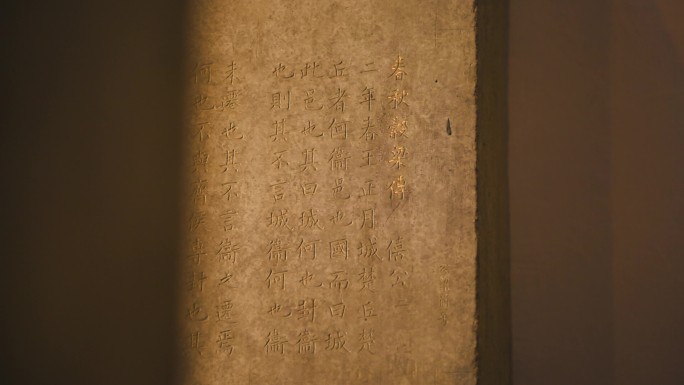 春秋穀梁傳 僖公二
二年春王正月城楚丘楚
丘者何衞邑也國而曰城
此邑也其曰城何也封衞
也則其不言城衞何也衞
未遷也其不言衞之遷焉
何也不與齊侯專封也其